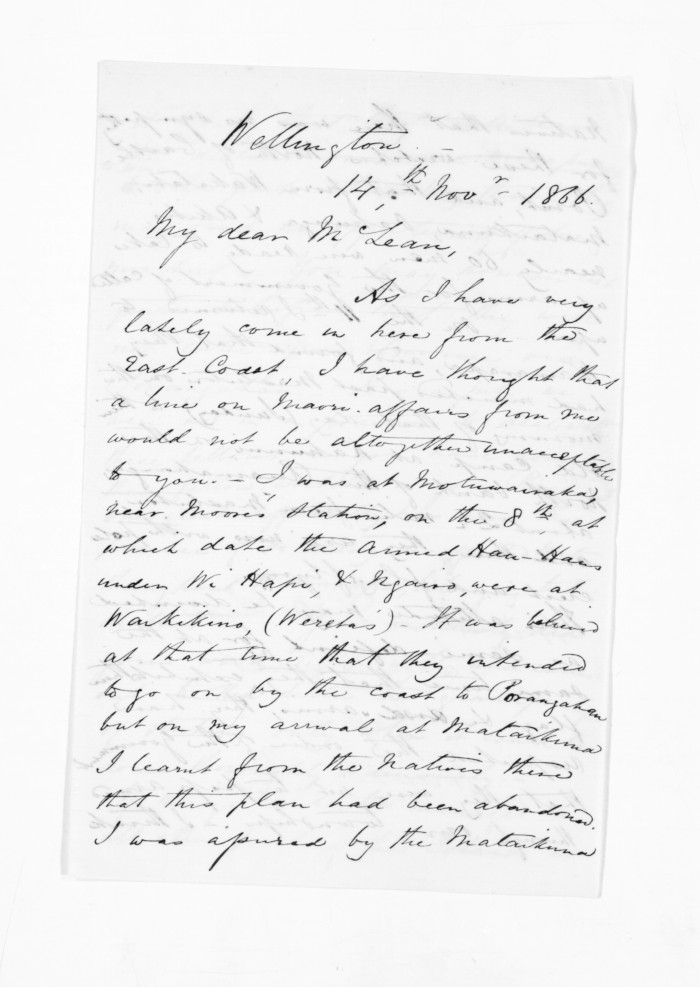 Wellington. -
14,th Novr 1866.
My dear McLean,
As I have very
lately come in here from the
East. Coast, I have thought that
a line on Maori. affairs from me
would not be altogether unacceptable
to you. - I was at Motuwairaka,
near Moores Station, on the 8th, at
which date the Armed Hau-Haus
under Wi Hapi, & Ngairo, were at
Waikikino, (Wereta's) - It was believed
at that time that they intended
to go on by the coast to Porangahau
but on my arrival at Mataikuna
I learnt from the Natives there
that this plan had been abandoned.
I was assured by the Mataikuna